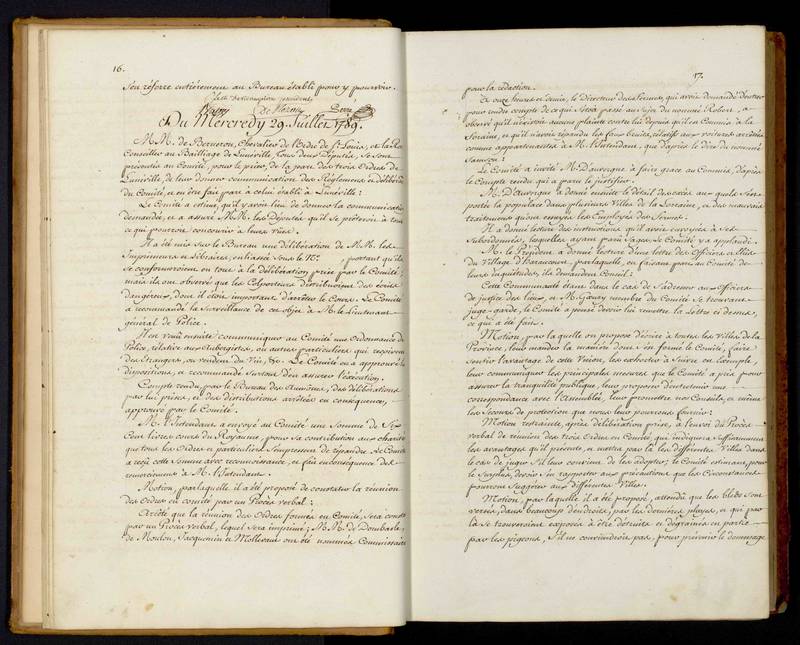 16.
S'en réferre entièrement au Bureau établi pour y pourvoir.
De Mézence Serre
Du Mercredy 29. Juillet 1789.
M. M. de Bermeron, Chevalier de l'Ordre de St Louis, et
Conseiller au Bailliage de Lunéville, tous deux Députés, se sont
présentés au Comité, pour le prier, de la part des trois Ordres de
Lunéville, de leur donner communication des Réglemens et délibérations
du Comité, et en être fait part à celui établi à Lunéville:
Le Comité a estimé, qu'il y avoit lieu de donner la communication
demandée, et a assuré M.M. les Députés qu'il se prêteroit à tout
ce qui pourroit concourir à leurs vues.
Il a été mis sur le Bureau une délibération de M.M. les
Imprimeurs et Libraires, en liasse sous le No. portant qu'ils
se conformeroient en tout à la délibération prise par le Comité;
mais ils ont observé que les Colporteurs distribuoient des écrits
dangereux, dont il étoit important d'arrêter le Cours. Le Comité
a recommandé la Surveillance de cet objet à M. le Lieutenant
général de Police.
Il est venu ensuite communiquer au Comité une Ordonnance de
Police, relative aux Aubergistes, ou autres particuliers qui reçoivent
des Etrangers, ou vendent du Vin, &c. Le Comité en a approuvé les
dispositions, et recommandé Surtout d'en assurer l'exécution.
Compte rendu, par le Bureau des Aumônes, des délibérations
par lui prises, et des distributions arrêtées en conséquence,
approuvé par le Comité.
M. l'Intendant a envoyé au Comité une Somme de Six
Cent livres cours du Royaume, pour sa contribution aux charités
que tous les Ordres en particulier s'empressent de répandre. Le Comité
a reçu cette Somme avec reconnoissance, et fait en conséquence des
remerciemens à M. l'Intendant.
Motion, par laquelle il a été proposé de constater la réunion
des Ordres en comité par un Procès verbal:
Arrêté que la réunion des Ordres formés en Comité, sera constatée
par un Procès verbal, lequel sera imprimé; M.M. de Dombasle,
de Moulon, Jacquemin et Mollevaut ont été nommés Commissaires
17.
pour la rédaction.
A onze heures et demie, le Directeur des Fermes, qui avoit demandé d'entrer
pour rendre compte de ce qui s'étoit passé au Sujet du nommé Robert, a
observé qu'il n'avoit aucune plainte contre lui depuis qu'il est Commis à la
Lorraine, et qu'il n'avoit répandu les faux bruits, relatifs aux voitures arrêtées
comme appartenantes à M. l'Intendant, que d'après le dire du nommé
Samson:
Le Comité a invité M. D'auvergne à faire grace au Commis, d'après
le Compte rendu qui a paru le justifier.
M. D'auvergne a donné ensuite le détail des excès aux quels s'est
portée la populace dans plusieurs Villes de la Lorraine, et des mauvais
traitemens qu'ont essuyés les Employés des Fermes.
Il a donné lecture des instructions qu'il avoit envoyées à ses
Subordonnés, lesquelles ayant paru Sages, le Comité y a applaudi.
M. le Président a donné lecture d'une lettre des Officiers et Elus
du Village d'Haraucourt, par laquelle, en faisant part au Comité de
leurs inquiétudes, ils demandent Conseil:
Cette Communauté étant dans le cas de s'adresser aux Officiers
de justice des lieux, et M. Gouvy membre du Comité se trouvant
juge-garde, le Comité a pensé devoir lui remettre la Lettre ci dessus,
ce qui a été fait.
Motion, par laquelle on propose d'écrire à toutes les Villes de la
Province, leur mander la manière dont s'est formé le Comité, faire
sentir l'avantage de cette Union, les exhorter à Suivre cet Exemple,
leur communiquer les principales mesures que le Comité a prises pour
assurer la tranquilité publique, leur proposer d'entretenir une
correspondance avec l'Assemblée, leur promettre nos Conseils, et même
les Secours de protection que nous leur pourrons fournir:
Motion restrainte, après délibération prise, à l'envoi du Procès
verbal de réunion des trois Ordres en Comité, qui indiquera suffisamment
les avantages qu'il présente, et mettra par là les différentes Villes dans
le cas de juger s'il leur convient de les adopter; le Comité estimant, pour
le Surplus, devoir s'en rapporter aux précautions que les Circonstances
pourront Suggérer aux différentes Villes.
Motion, par laquelle il a été proposé, attendu que les bleds sont
versés, dans beaucoup d'endroits, par les dernières pluyes, et qui par
là se trouveroient exposés à être détruits et dégrainés en partie
par les pigeons, s'il ne conviendroit pas, pour prévenir le dommage